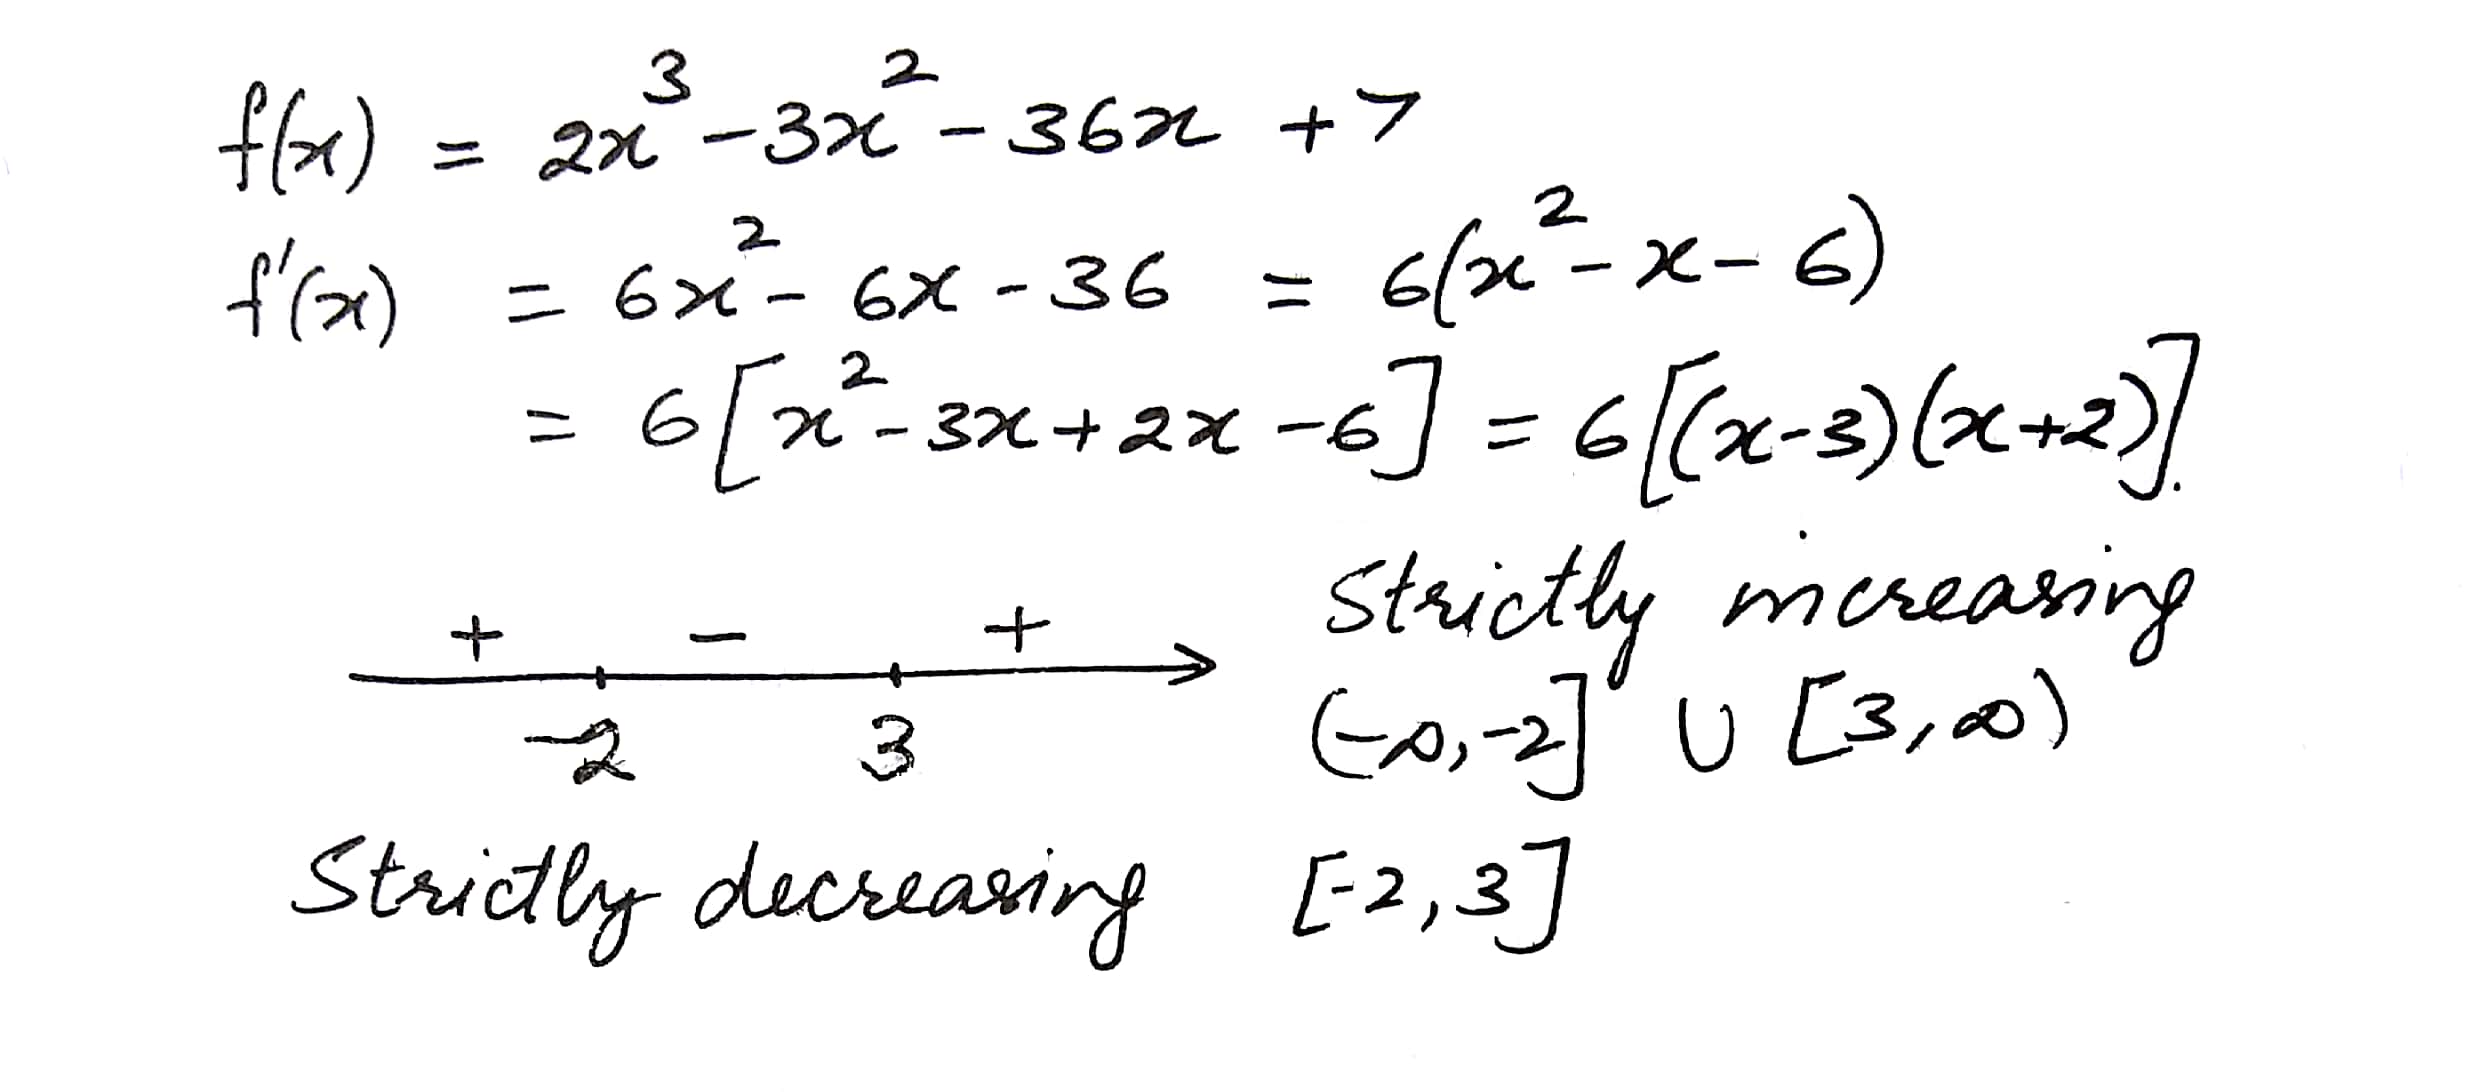 f(x) = 2x³ - 3x² - 36x + 7
f'(x) = 6x² - 6x - 36 = 6(x² - x - 6)
= 6[x² - 3x + 2x - 6] = 6[(x-3)(x+2)].
+ - +
-2 3
Strictly increasing
(-∞, -2] ∪ [3, ∞)
Strictly decreasing [-2, 3]